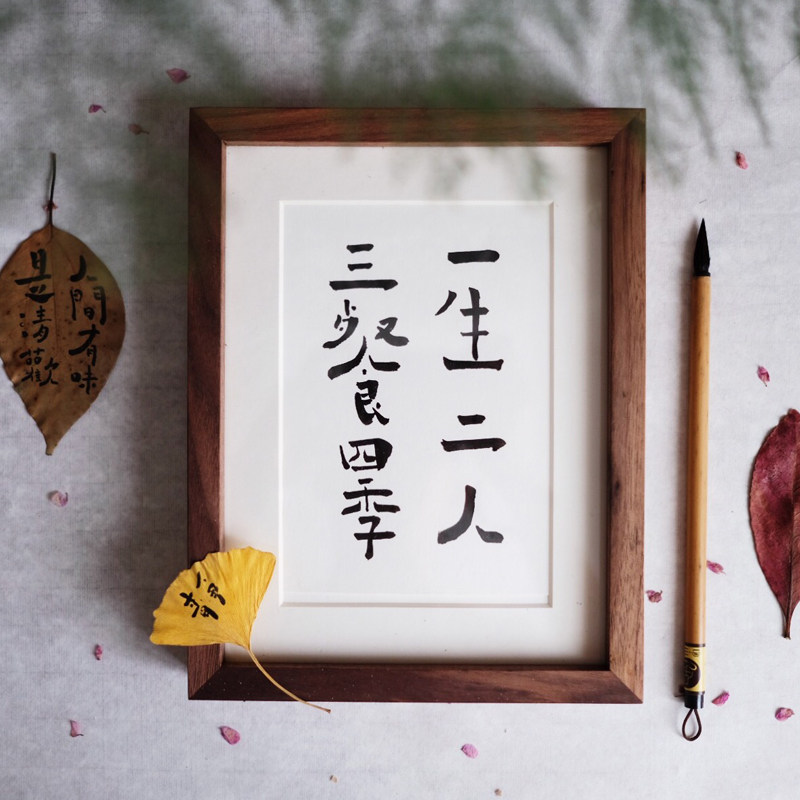 一生二人
三餐四季
人間有味
是清歡